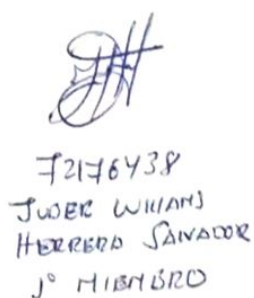 72176438
JUDER WILIAMS
HERRERA SALVADOR
1° MIEMBRO